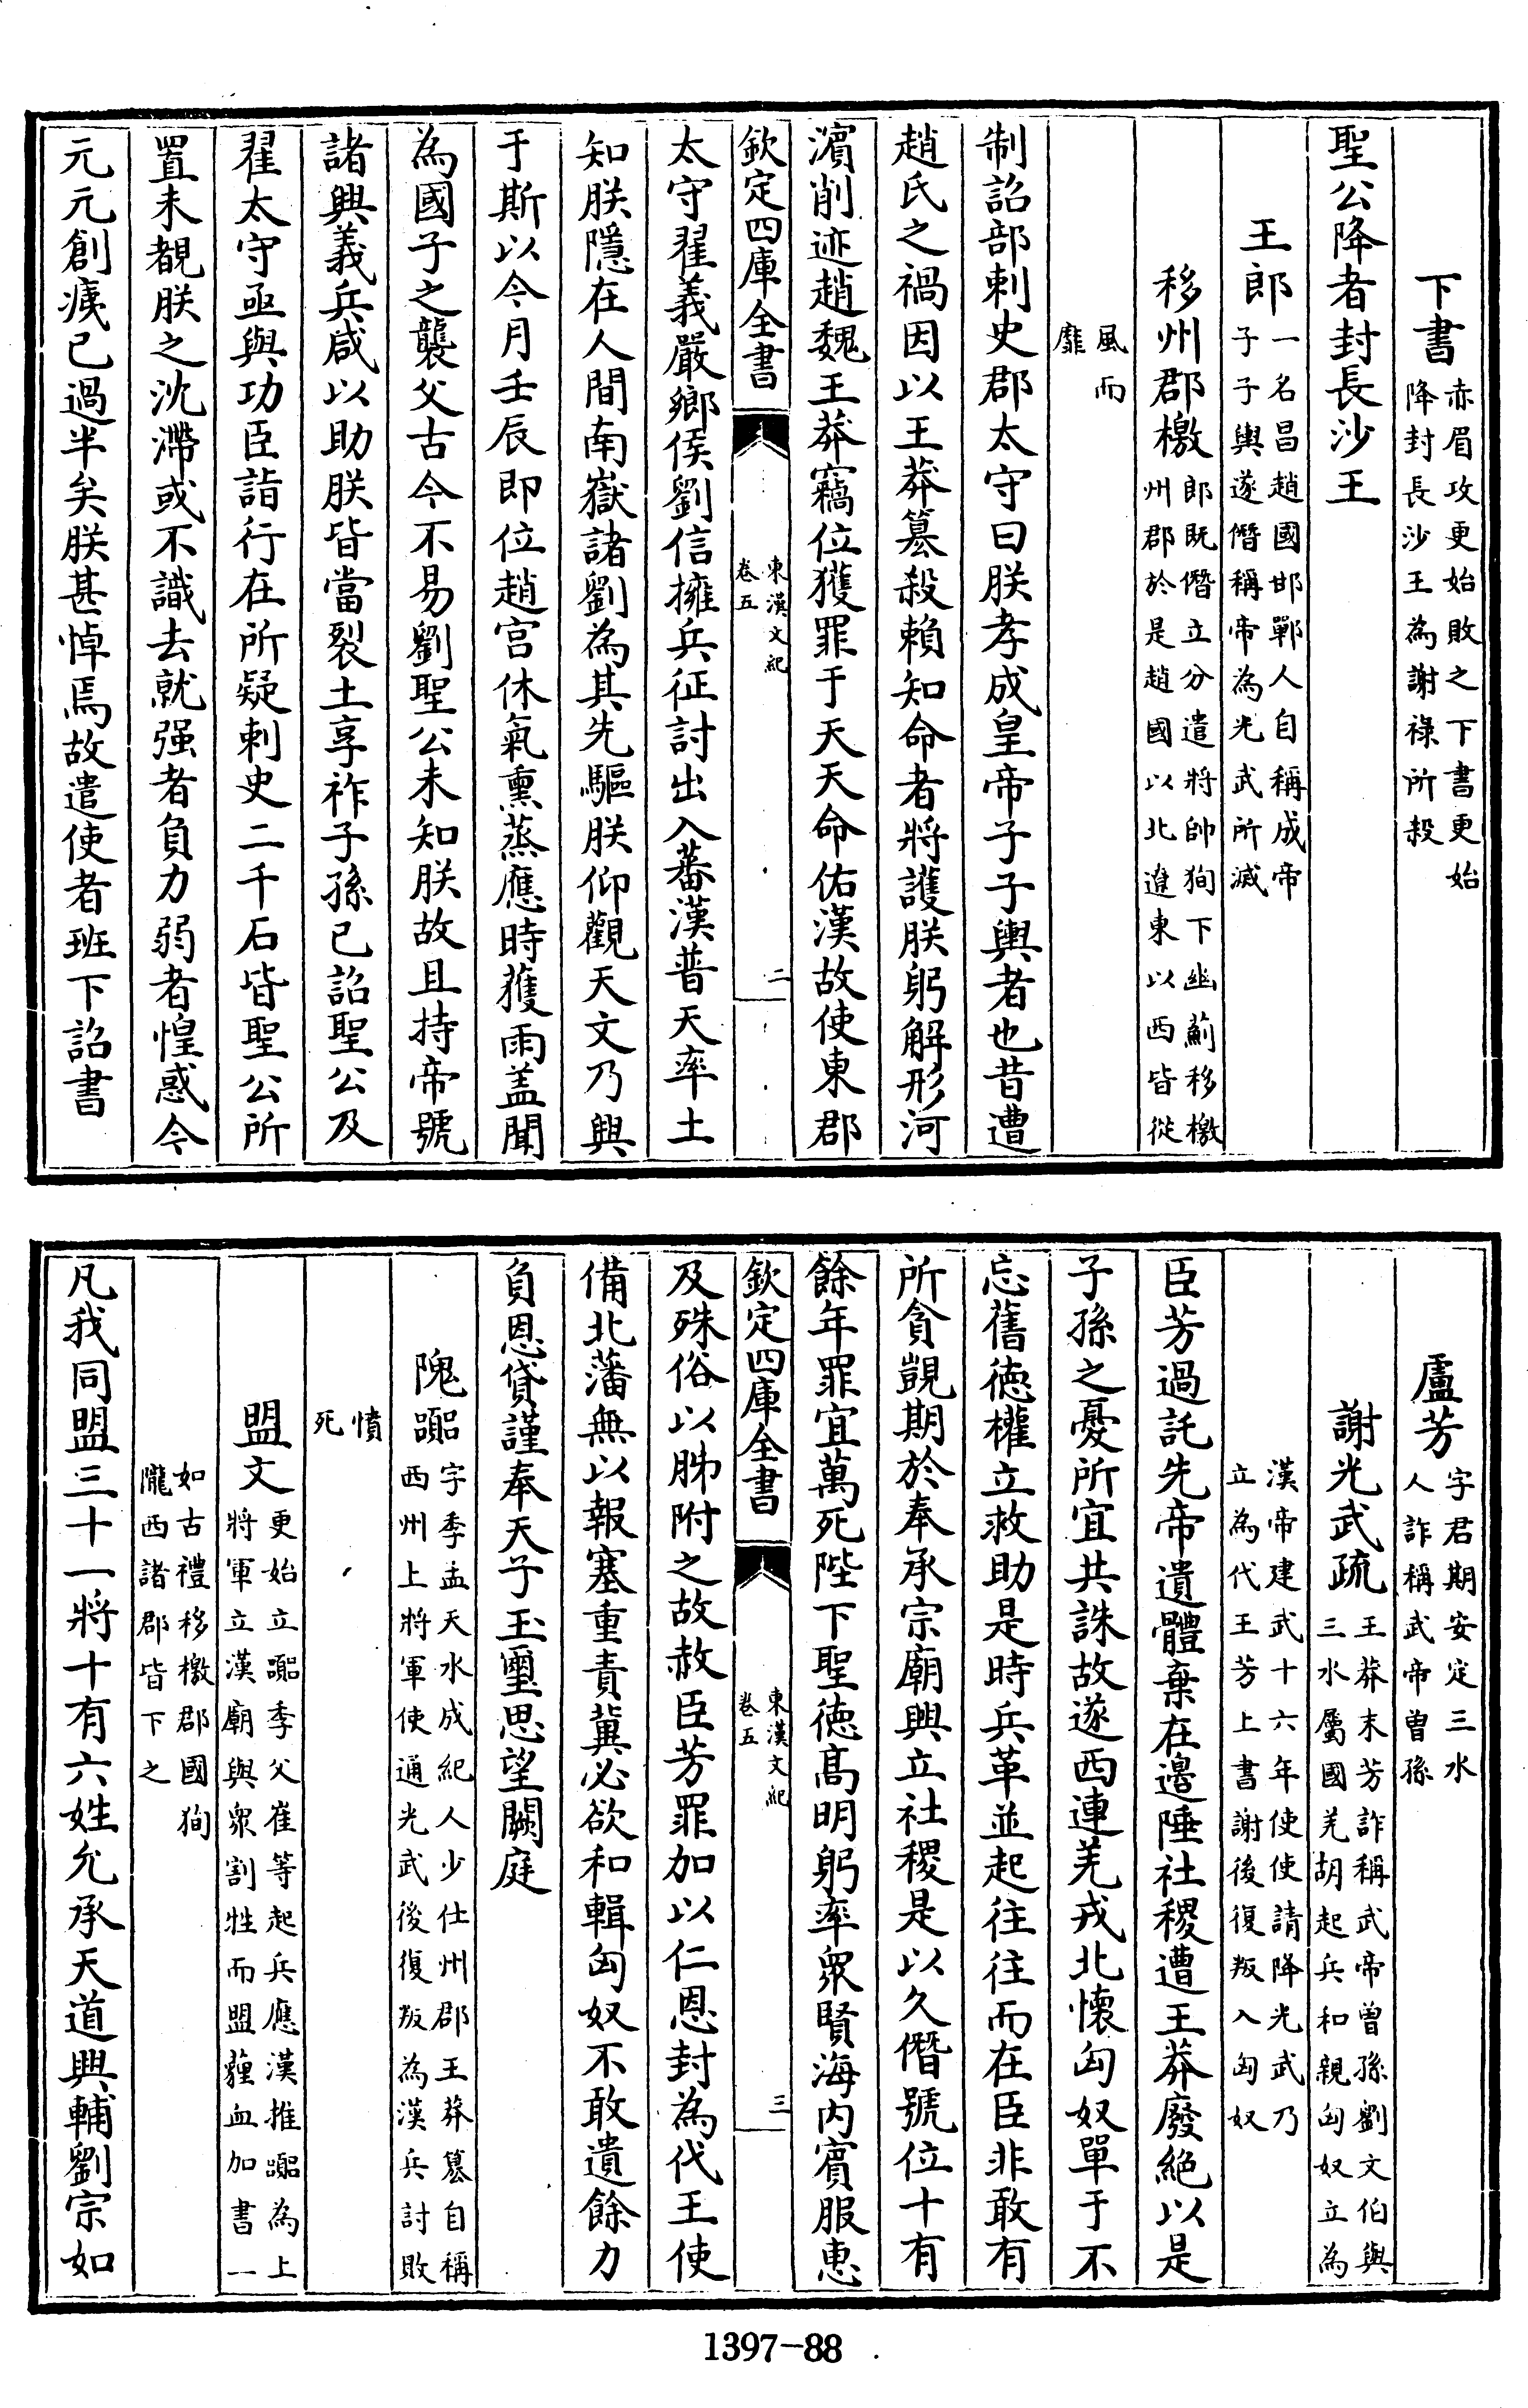 下書赤眉攻更始敗之下書更始降封長沙王為謝祿所殺
聖公降者封長沙王
王郎一名昌趙國邯鄲人自稱成帝子子輿遂僭稱帝為光武所滅
移州郡檄郎既僭立分遣將帥狥下幽薊移檄州郡於是趙國以北遼東以西皆從
風而靡
制詔部刺史郡太守曰朕孝成皇帝子子輿者也昔遭
趙氏之禍因以王莽簒殺賴知命者將護朕躬解形河
濱削迹趙魏王莽竊位獲罪于天天命佑漢故使東郡
欽定四庫全書 東漢文紀 卷五 二
太守翟義嚴鄉侯劉信擁兵征討出入蕃漢普天率土
知朕隱在人間南嶽諸劉為其先驅朕仰觀天文乃興
于斯以今月壬辰即位趙宫休氣熏蒸應時獲雨盖聞
為國子之襲父古今不易劉聖公未知朕故且持帝號
諸興義兵咸以助朕皆當裂土享祚子孫已詔聖公及
翟太守亟與功臣詣行在所疑刺史二千石皆聖公所
置未覩朕之沈滯或不識去就强者負力弱者惶惑今
元元創痍已過半矣朕甚悼焉故遣使者班下詔書
盧芳字君期安定三水人詐稱武帝曾孫
謝光武疏王莽末芳詐稱武帝曾孫劉文伯與三水屬國羌胡起兵和親匈奴立為
漢帝建武十六年使使請降光武乃立為代王芳上書謝後復叛入匈奴
臣芳過託先帝遺體棄在邊陲社稷遭王莽廢絶以是
子孫之憂所宜共誅故遂西連羌戎北懷匈奴單于不
忘舊徳權立救助是時兵革並起往往而在臣非敢有
所貪覬期於奉承宗廟興立社稷是以久僭號位十有
餘年罪宜萬死陛下聖徳髙明躬率衆賢海内賓服惠
欽定四庫全書 東漢文紀 卷五 三
及殊俗以胏附之故赦臣芳罪加以仁恩封為代王使
備北藩無以報塞重責冀必欲和輯匈奴不敢遺餘力
負恩貸謹奉天子玉璽思望闕庭
隗嚻字季孟天水成紀人少仕州郡王莽簒自稱西州上將軍使通光武後復叛為漢兵討敗
憤死
盟文更始立嚻季父崔等起兵應漢推嚻為上將軍立漢廟與衆割牲而盟薶血加書一
如古禮移檄郡國狥隴西諸郡皆下之
凡我同盟三十一將十有六姓允承天道興輔劉宗如
1397-88